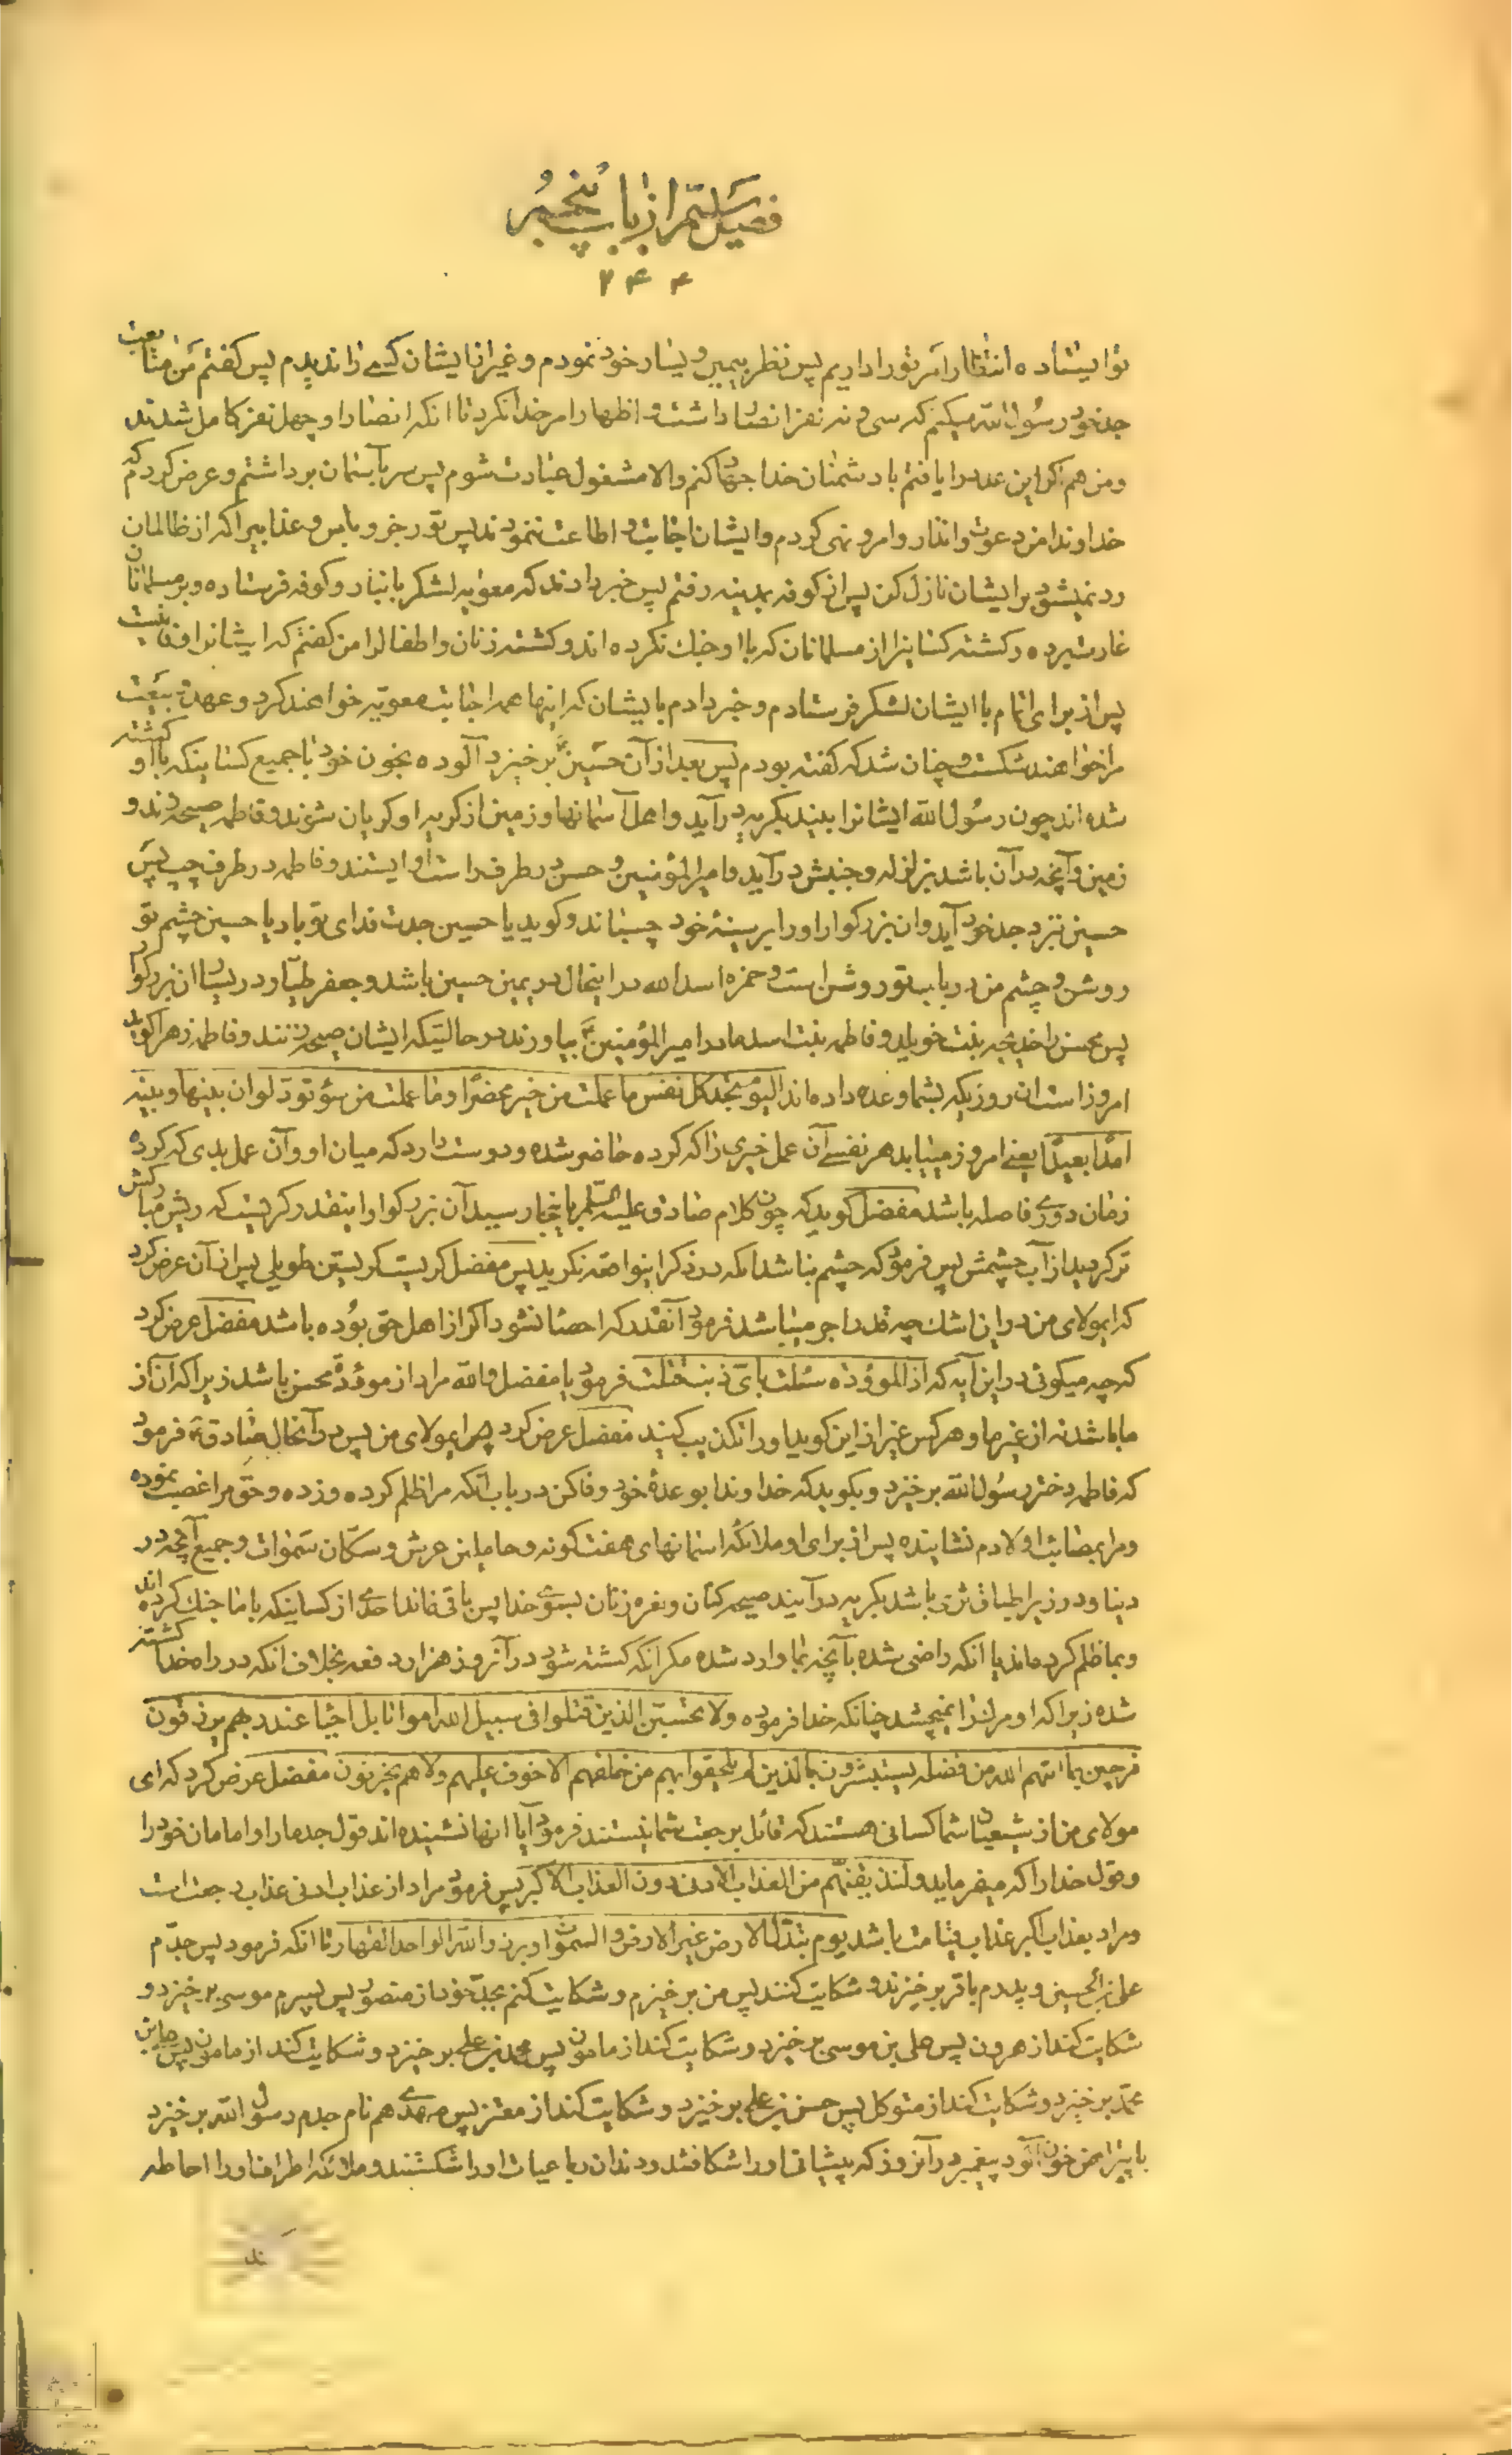 فصل سیّم از باب پنجم
۲۴۴
تو ایستاده انتظار امر تو را داریم پس نظر بیمین و یسار خود نمودم و غیر از ایشان کسی را ندیدم پس کفتم من متابعت
جد خود رسول الله میکنم که سی و نه نفر انصار داشت و اظهار امر خدا نکرد تا انکه انصار او چهل نفر کامل شدند
و من هم اکر این عدد را یافتم با دشمنان خدا جهاد کنم والا مشغول عبادت شوم پس سر بآسمان برداشتم و عرض کردم که
خداوندا من دعوت و انذار و امر و نهی کردم و ایشان اجابت و اطاعت ننمودند پس تو رجز و باس و عذابیرا که از ظالمان
رد نمیشود بر ایشان نازل کن پس از کوفه بمدینه رفتم پس خبر دادند که معویه لشکر بانبار و کوفه فرستاده و بر مسلمانان
غارت برده و کشته کسانیرا از مسلمانان که با او جنك نکرده اند و کشته زنان و اطفال را من کفتم که ایشانرا وفا نیست
پس از برای اتمام با ایشان لشکر فرستادم و خبر دادم بایشان که اینها همه اجابت معویه خواهند کرد و عهد و بیعت
مرا خواهند شکست و چنان شد که کفته بودم پس بعد از آن حسین برخیزد آلوده بخون خود با جمیع کسانیکه با او کشته
شده اند چون رسول الله ایشانرا ببیند بکریه درآید و اهل آسمانها و زمین از کریه او کریان شوند و فاطمه صیحه زند و
زمین و آنچه در آن باشد بزلزله و جنبش درآید و امیر المؤمنین و حسن در طرف راست او ایستند و فاطمه در طرف چپ پس
حسین نزد جد خود آید و ان بزرکوار او را بر سینه خود چسباند و کوید یا حسین جدت فدای تو باد یا حسین چشم تو
روشن و چشم من در باب تو روشن است و حمزه اسد الله در اینحال در یمین حسین باشد و جعفر طیار در یسار ان بزرکوار
پس محسن را خدیجه بنت خویلد و فاطمه بنت اسد مادر امیر المؤمنین بیاورند در حالتیکه ایشان صیحه زنند و فاطمه زهرا کوید
امروز است ان روزیکه بشما وعده داده اند الیوم تجد کل نفس ما عملت من خیر محضرا و ما عملت من سوء تود لو ان بینها و بینه
امدا بعیدا یعنی امروز مییابد هر نفسی آن عمل خیری را که کرده حاضر شده و دوست دارد که میان او و آن عمل بدی که کرده
زمان دوری فاصله باشد مفضل کوید که چون کلام صادق علیه السلم باینجا رسید آن بزرکوار اینقدر کریست که ریش مبارکش
تر کردید از آب چشمش پس فرمود که چشم مباشد انکه در ذکر اینواقعه نکرید پس مفضل کریست کریستن طویلی پس از آن عرض کرد
که ایمولای من در این اشك چه قدر اجر میباشد فرمود آنقدر که احصا نشود اکر از اهل حق بوده باشد مفضل عرض کرد
که چه میکوئی در این آیه که اذا الموؤده سئلت بای ذنب قتلت فرمود یا مفضل والله مراد از موؤده محسن باشد زیرا که ان از
ما باشد نه از غیر ما و هر کس غیر از این کوید او را تکذیب کنید مفضل عرض کرد چه ایمولای من پس در آنحال صادق فرمود
که فاطمه دختر رسول الله برخیزد و بکوید که خداوندا بوعده خود وفا کن در باب انکه مرا ظلم کرده و زده و حق مرا غصب نموده
و مرا بمصائب اولادم نشانیده پس از برای او ملائکه اسمانهای هفت کونه و حاملین عرش و سکان سموات و جمیع آنچه در
دنیا و در زیر اطباق ثری باشد بکریه درآیند صیحه کنان و نعره زنان بسوی خدا پس باقی نماند احدی از کسانیکه با ما جنك کرده اند
و بما ظلم کرده اند یا انکه راضی شده بآنچه بما وارد شده مکر انکه کشته شود در آنروز هزار دفعه بخلاف انکه در راه خدا کشته
شده زیرا که او مرك را نمیچشد چنانکه خدا فرموده ولا تحسبن الذین قتلوا فی سبیل الله امواتا بل احیاء عند ربهم یرزقون
فرحین بما اتیهم الله من فضله یستبشرون بالذین لم یلحقوا بهم من خلفهم الا خوف علیهم ولا هم یحزنون مفضل عرض کرد که ای
مولای من از شیعیان شما کسانی هستند که قائل برجعت شما نیستند فرمود آیا انها نشنیده اند قول جد ما را و امامان خود را
و قول خدا را که میفرماید ولنذیقنهم من العذاب الادنی دون العذاب الاکبر پس فرمود مراد از عذاب ادنی عذاب رجعت است
و مراد بعذاب اکبر عذاب قیامت باشد یوم تبدل الارض غیر الارض والسموات و برزوا لله الواحد القهار تا انکه فرمود پس جدم
علی بن الحسین و پدرم باقر برخیزند و شکایت کنند پس من برخیزم و شکایت کنم بجد خود از منصور پس پسرم موسی برخیزد و
شکایت کند از هرون پس علی بن موسی برخیزد و شکایت کند از مامون پس محمد بن علی برخیزد و شکایت کند از مامون پس علی بن
محمد برخیزد و شکایت کند از متوکل پس حسن بن علی برخیزد و شکایت کند از معتز پس مهدی هم نام جدم رسول الله برخیزد
با پیراهن خون آلود پیغمبر در آنروز که پیشانی او را شکافتند و دندان رباعیات او را شکستند و ملائکه اطراف او را احاطه
ند